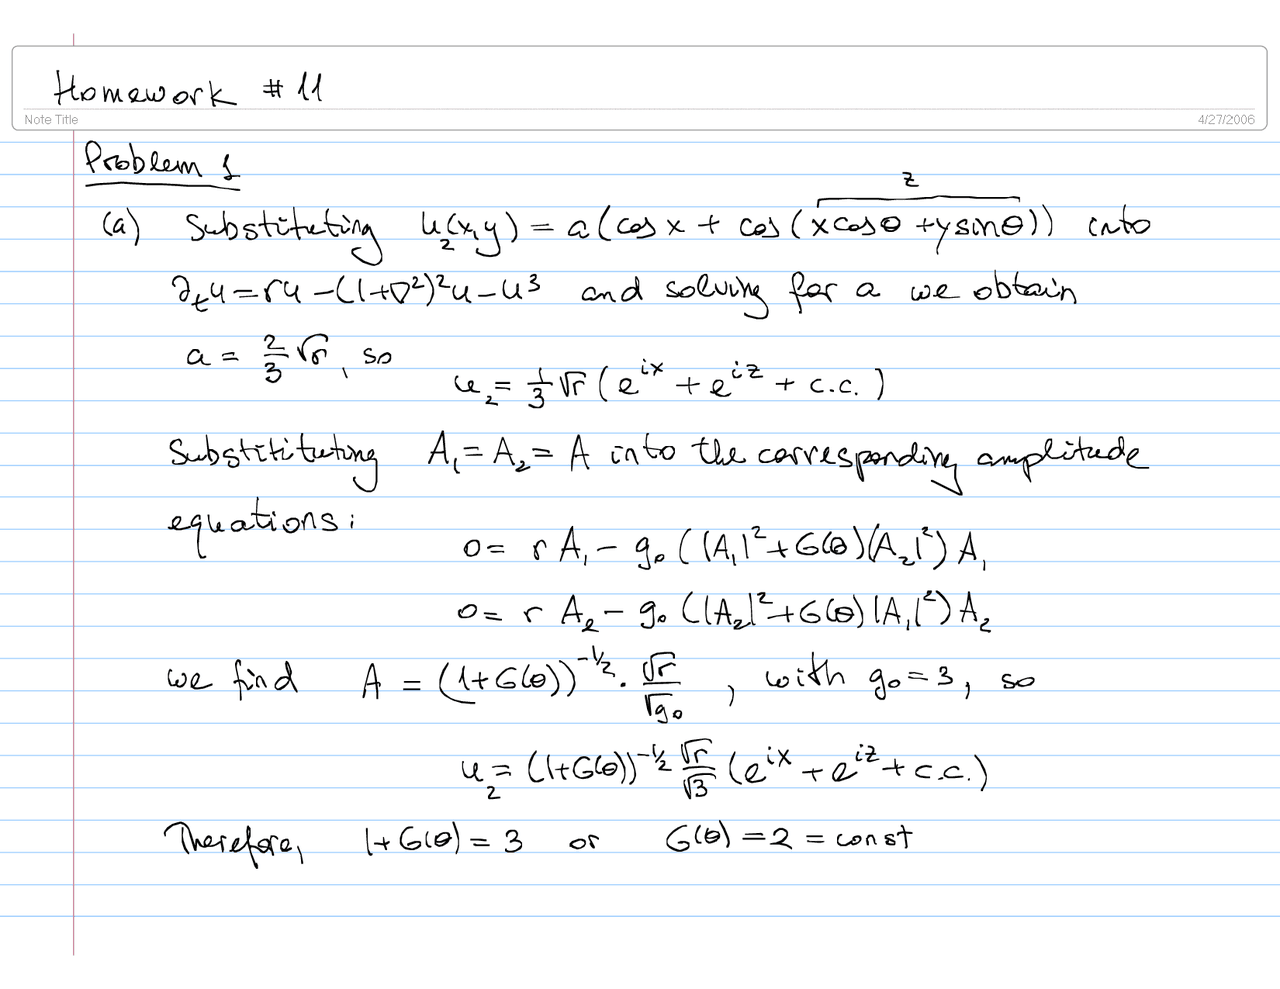 Homework # 11
Note Title
4/27/2006
Problem 1
z
(a) Substituting u₂(x,y) = a(cos x + cos (x cosθ + y sinθ)) into
∂ₜu = ru − (1+∇²)²u − u³ and solving for a we obtain
a = 2/3 √r, so
u₂ = 1/3 √r (e^{ix} + e^{iz} + c.c.)
Substitituting A₁ = A₂ = A into the corresponding amplitude
equations:
0 = r A₁ − g₀ (|A₁|² + G(θ)|A₂|²) A₁
0 = r A₂ − g₀ (|A₂|² + G(θ) |A₁|²) A₂
we find A = (1+G(θ))^{-1/2} · √r/√g₀ , with g₀ = 3, so
u₂ = (1+G(θ))^{-1/2} √r/√3 (e^{ix} + e^{iz} + c.c.)
Therefore, 1+G(θ) = 3 or G(θ) = 2 = const